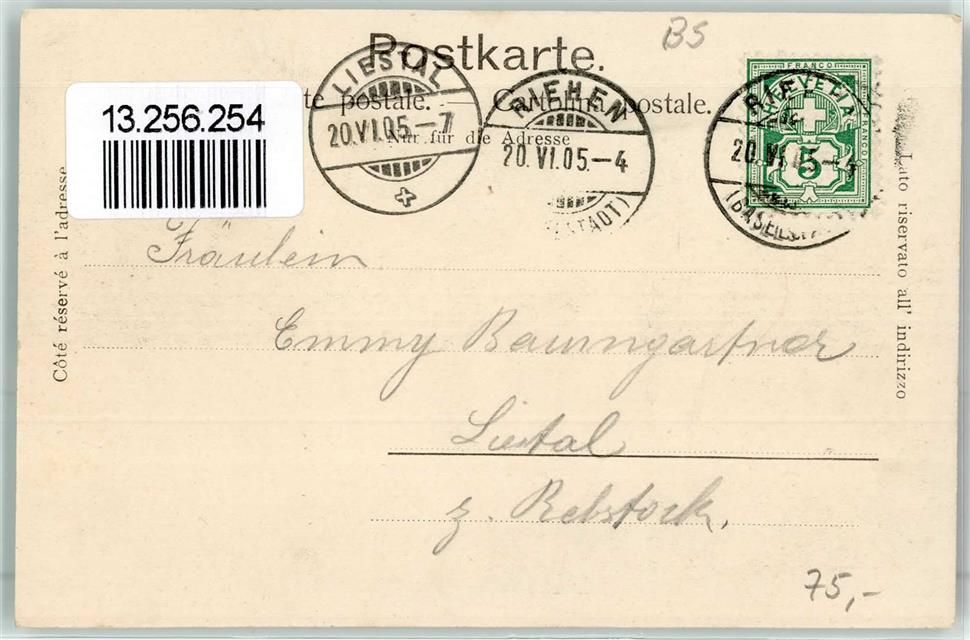 BS
Postkarte.
postale. — Cartolina postale.
Nur für die Adresse
13.256.254
LIESTAL
20.VI.05.–7
RIEHEN
20.VI.05–4
(BASELSTADT)
FRANCO
HELVETIA
5
FRANCO
20.VI.05–4
Côté réservé à l'adresse
Lato riservato all' indirizzo
Fräulein
Emmy Baumgartner
Liestal
z. Rebstock.
75,-